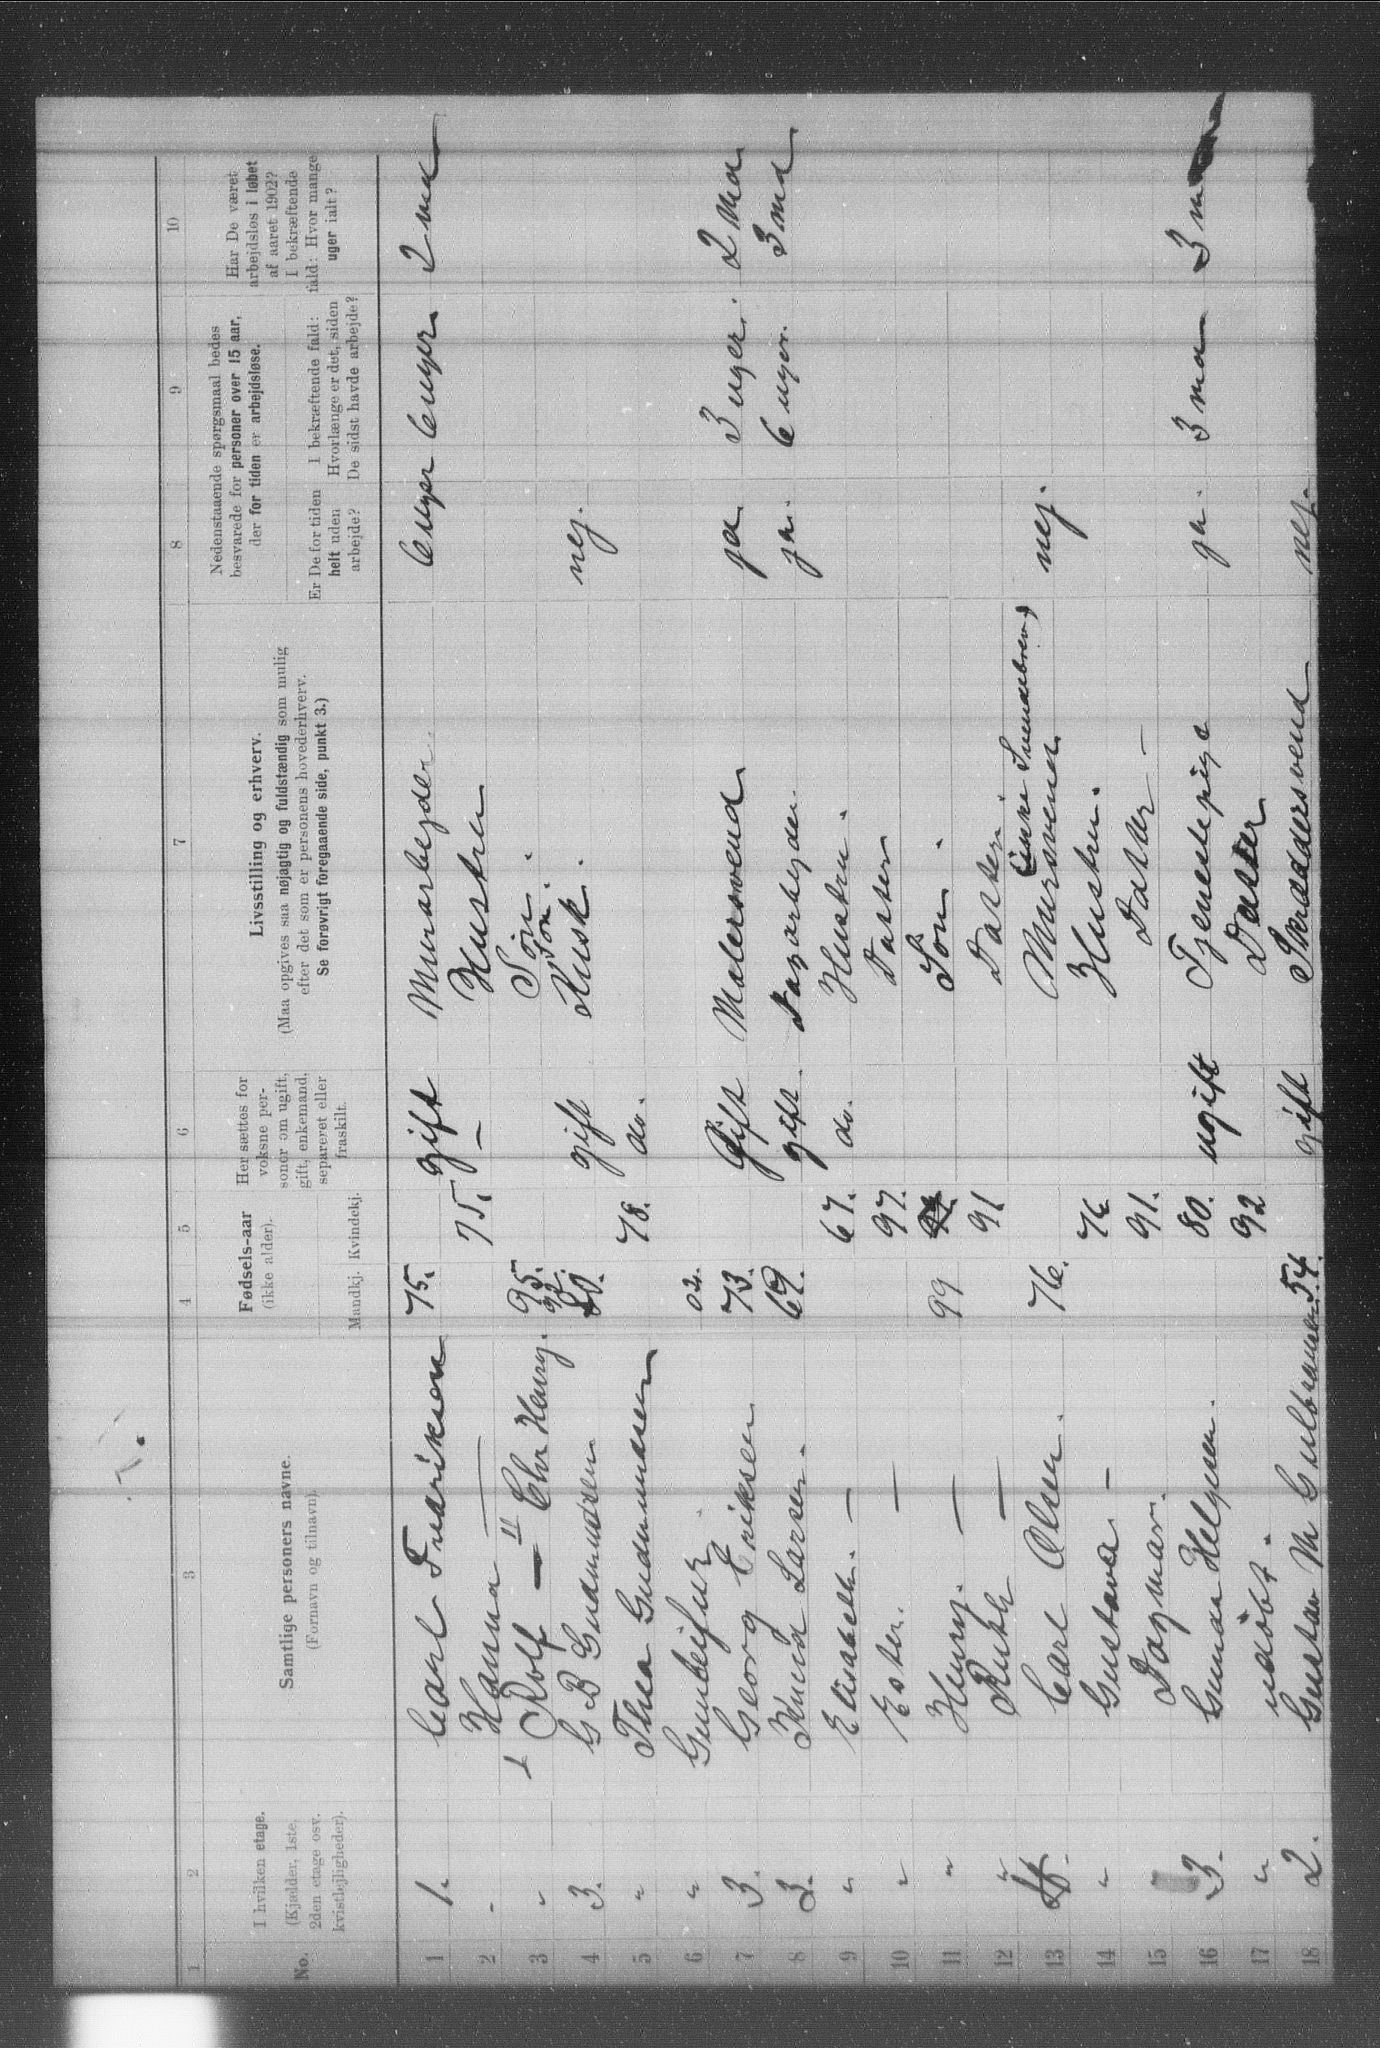 1 2 3 4 5 6 7 8 9 10
No.
I hvilken etage.
(Kjælder, 1ste.
2den etage osv.
kvistlejligheder).
Samtlige personers navne.
(Fornavn og tilnavn).
Fødsels-aar
(ikke alder).
Mandkj. Kvindekj.
Her sættes for
voksne per-
soner om ugift,
gift, enkemand,
separeret eller
fraskilt.
Livsstilling og erhverv.
(Maa opgives saa nøjagtig og fuldstændig som mulig
efter det som er personens hovederhverv.
Se forøvrigt foregaaende side, punkt 3.)
Nedenstaaende spørgsmaal bedes
besvarede for personer over 15 aar,
der for tiden er arbejdsløse.
Er De for tiden
helt uden
arbejde?
I bekræftende fald:
Hvorlænge er det, siden
De sidst havde arbejde?
Har De været
arbejdsløs i løbet
af aaret 1902?
I bekræftende
fald: Hvor mange
uger ialt?
1 1. Carl Fredriksen 75. gift Murarbejder 6 uger 6 uger 2 md
2 - Hanna — 75. - Hustru
3 - Rolf — " — Chr Harry. 95. 92. Søn. Søn.
4 3. G B Gudmundsen 80. gift Kusk. nej.
5 " Thea Gudmundsen 78. do.
6 " 02.
7 3. Georg Eriksen 73. Gift Malersvend ja 3 uger. 2 Md.
8 3. Knud Larsen. 69. gift. Dagarbejder. ja. 6 uger. 3 md
9 " Elisabeth. — 67. do. Hustru.
10 " Ester. — 97. Datter
11 " Henry. — 99 Søn.
12 " Ruth — 91 Datter.
13 Carl Olsen. 76. Mursvend. nej.
14 " Gustava — 76 Hustru.
15 Dagmar. 91. Datter —
16 3. Gunda Helgesen. 80. ugift Tjenestepige ja. 3 md 3 m
17 " udøbt. 92 Datter
18 2. Gustav M Gulbransen 54. gift Skræddersvend nej.